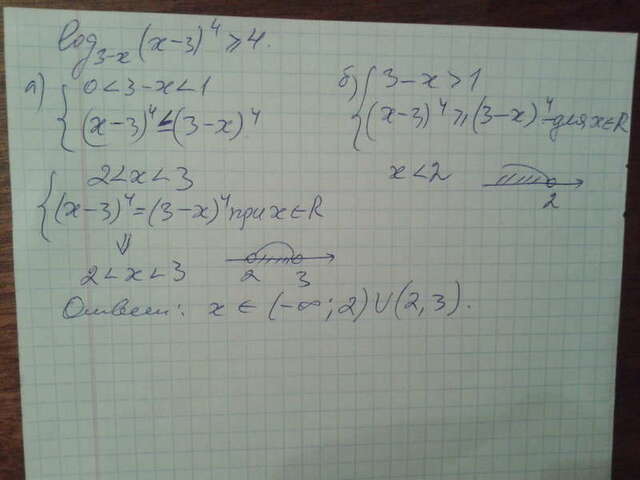 log₃₋ₓ(x-3)⁴ ≥ 4.
а) { 0 < 3-x < 1
(x-3)⁴ ≤ (3-x)⁴
б) { 3-x > 1
(x-3)⁴ ≥ (3-x)⁴ - для x∈R
{ 2 < x < 3
(x-3)⁴ = (3-x)⁴ при x∈R
x < 2
2
⇓
2 < x < 3
2 3
Ответ: x ∈ (-∞; 2) ∪ (2, 3).